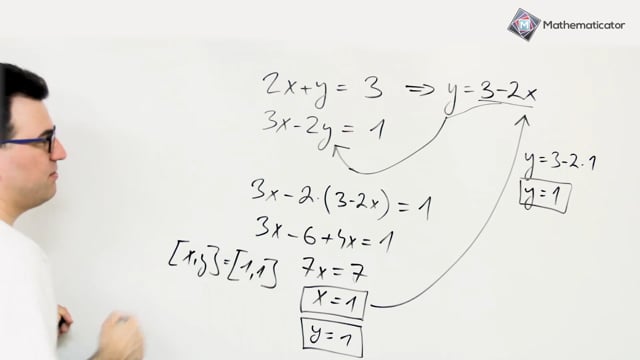 Mathematicator
2x+y = 3 ⇒ y = 3-2x
3x-2y = 1
y = 3-2·1
y = 1
3x-2·(3-2x) = 1
3x-6+4x = 1
[x,y] = [1,1] 7x = 7
x = 1
y = 1